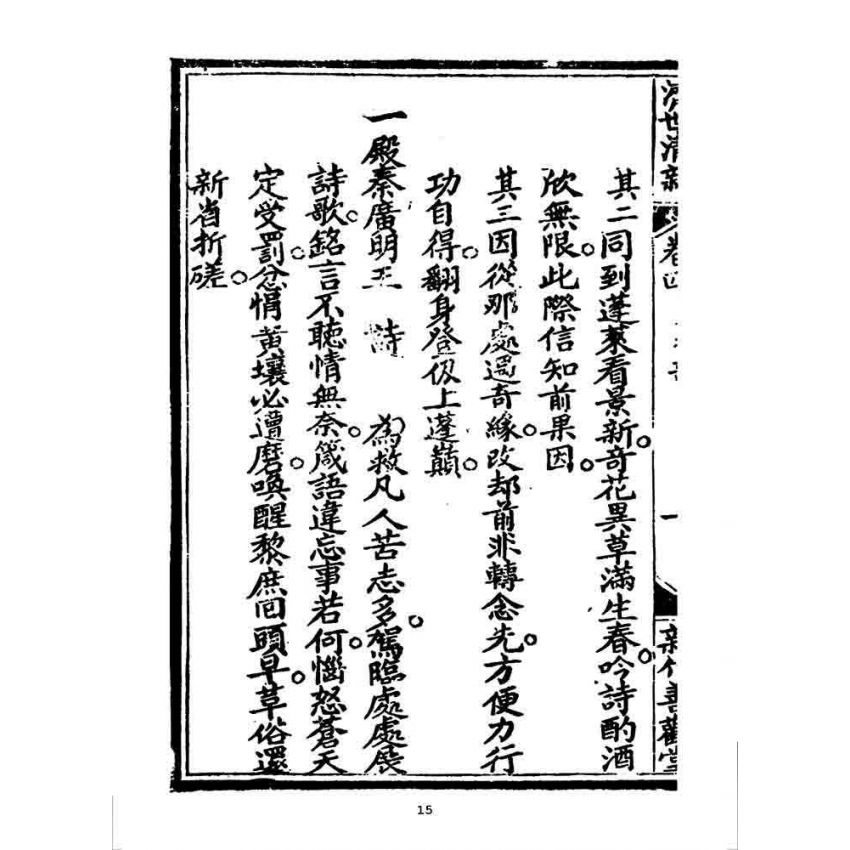 其二同到蓬萊看景新。奇花異草滿生春。吟詩酌酒
欣無限。此際信知前果因。
其三因從那處遇奇緣。改却前非轉念先。方便力行
功自得。翻身登伋上蓬巔。
一殿秦廣明王 詩 為救凡人苦志多。駕臨處處展
詩歌。銘言不聽情無奈。箴語違忘事若何。惱怒蒼天
定受罰。忿惰黃壤必遭磨。喚醒黎庶回頭早。草俗還
新省折磋。
15